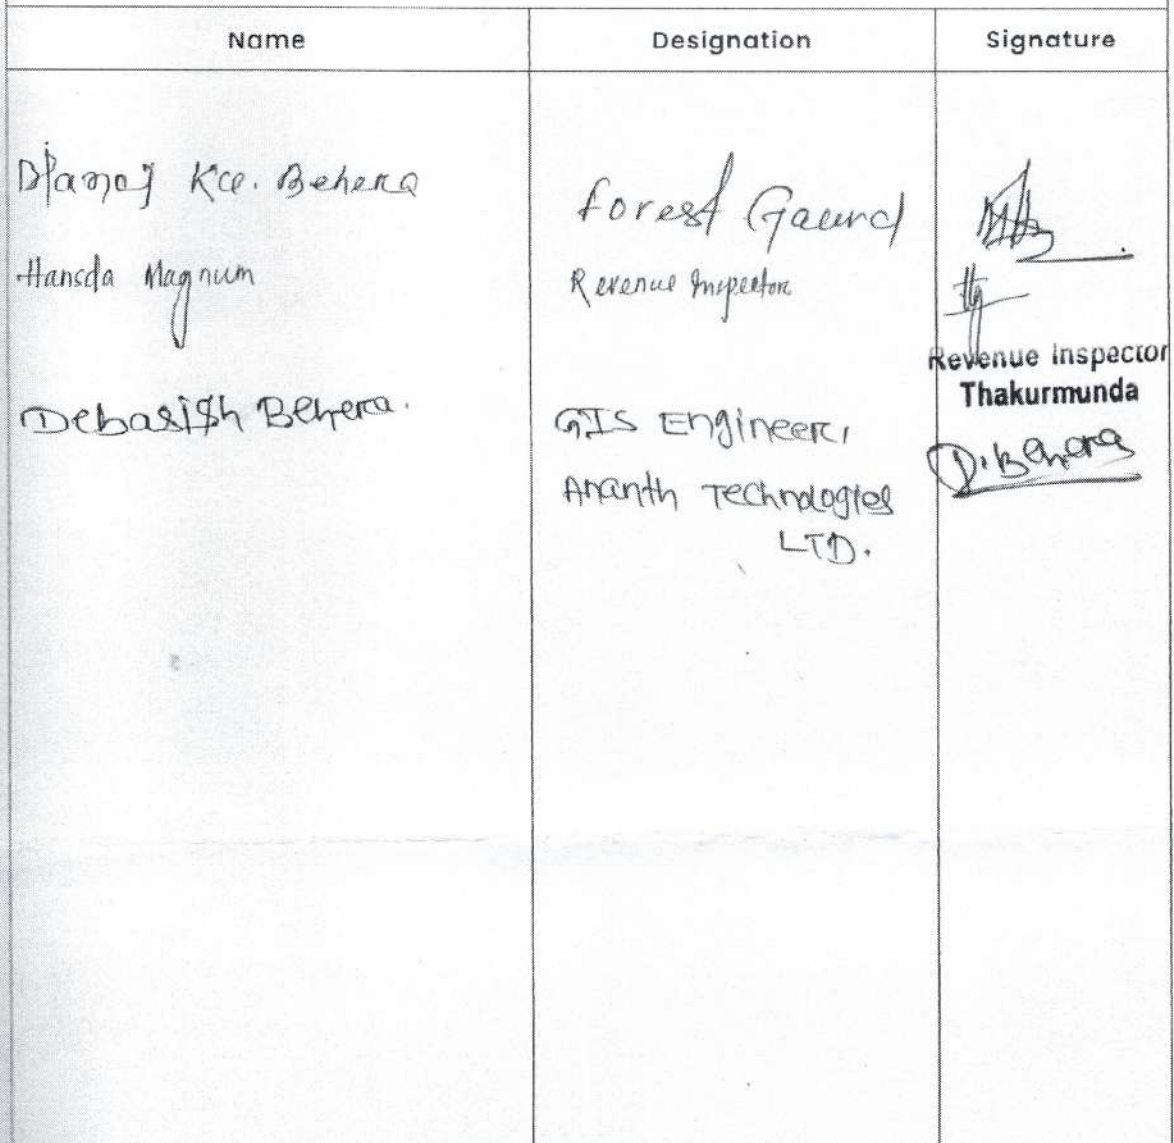 Name Designation Signature
Behera forest Gaurd
Hansda Magnum Revenue Inspector
Revenue Inspector
Thakurmunda
Debasish Behera. GIS Engineer, D.Behera
Ananth Technologies
LTD.